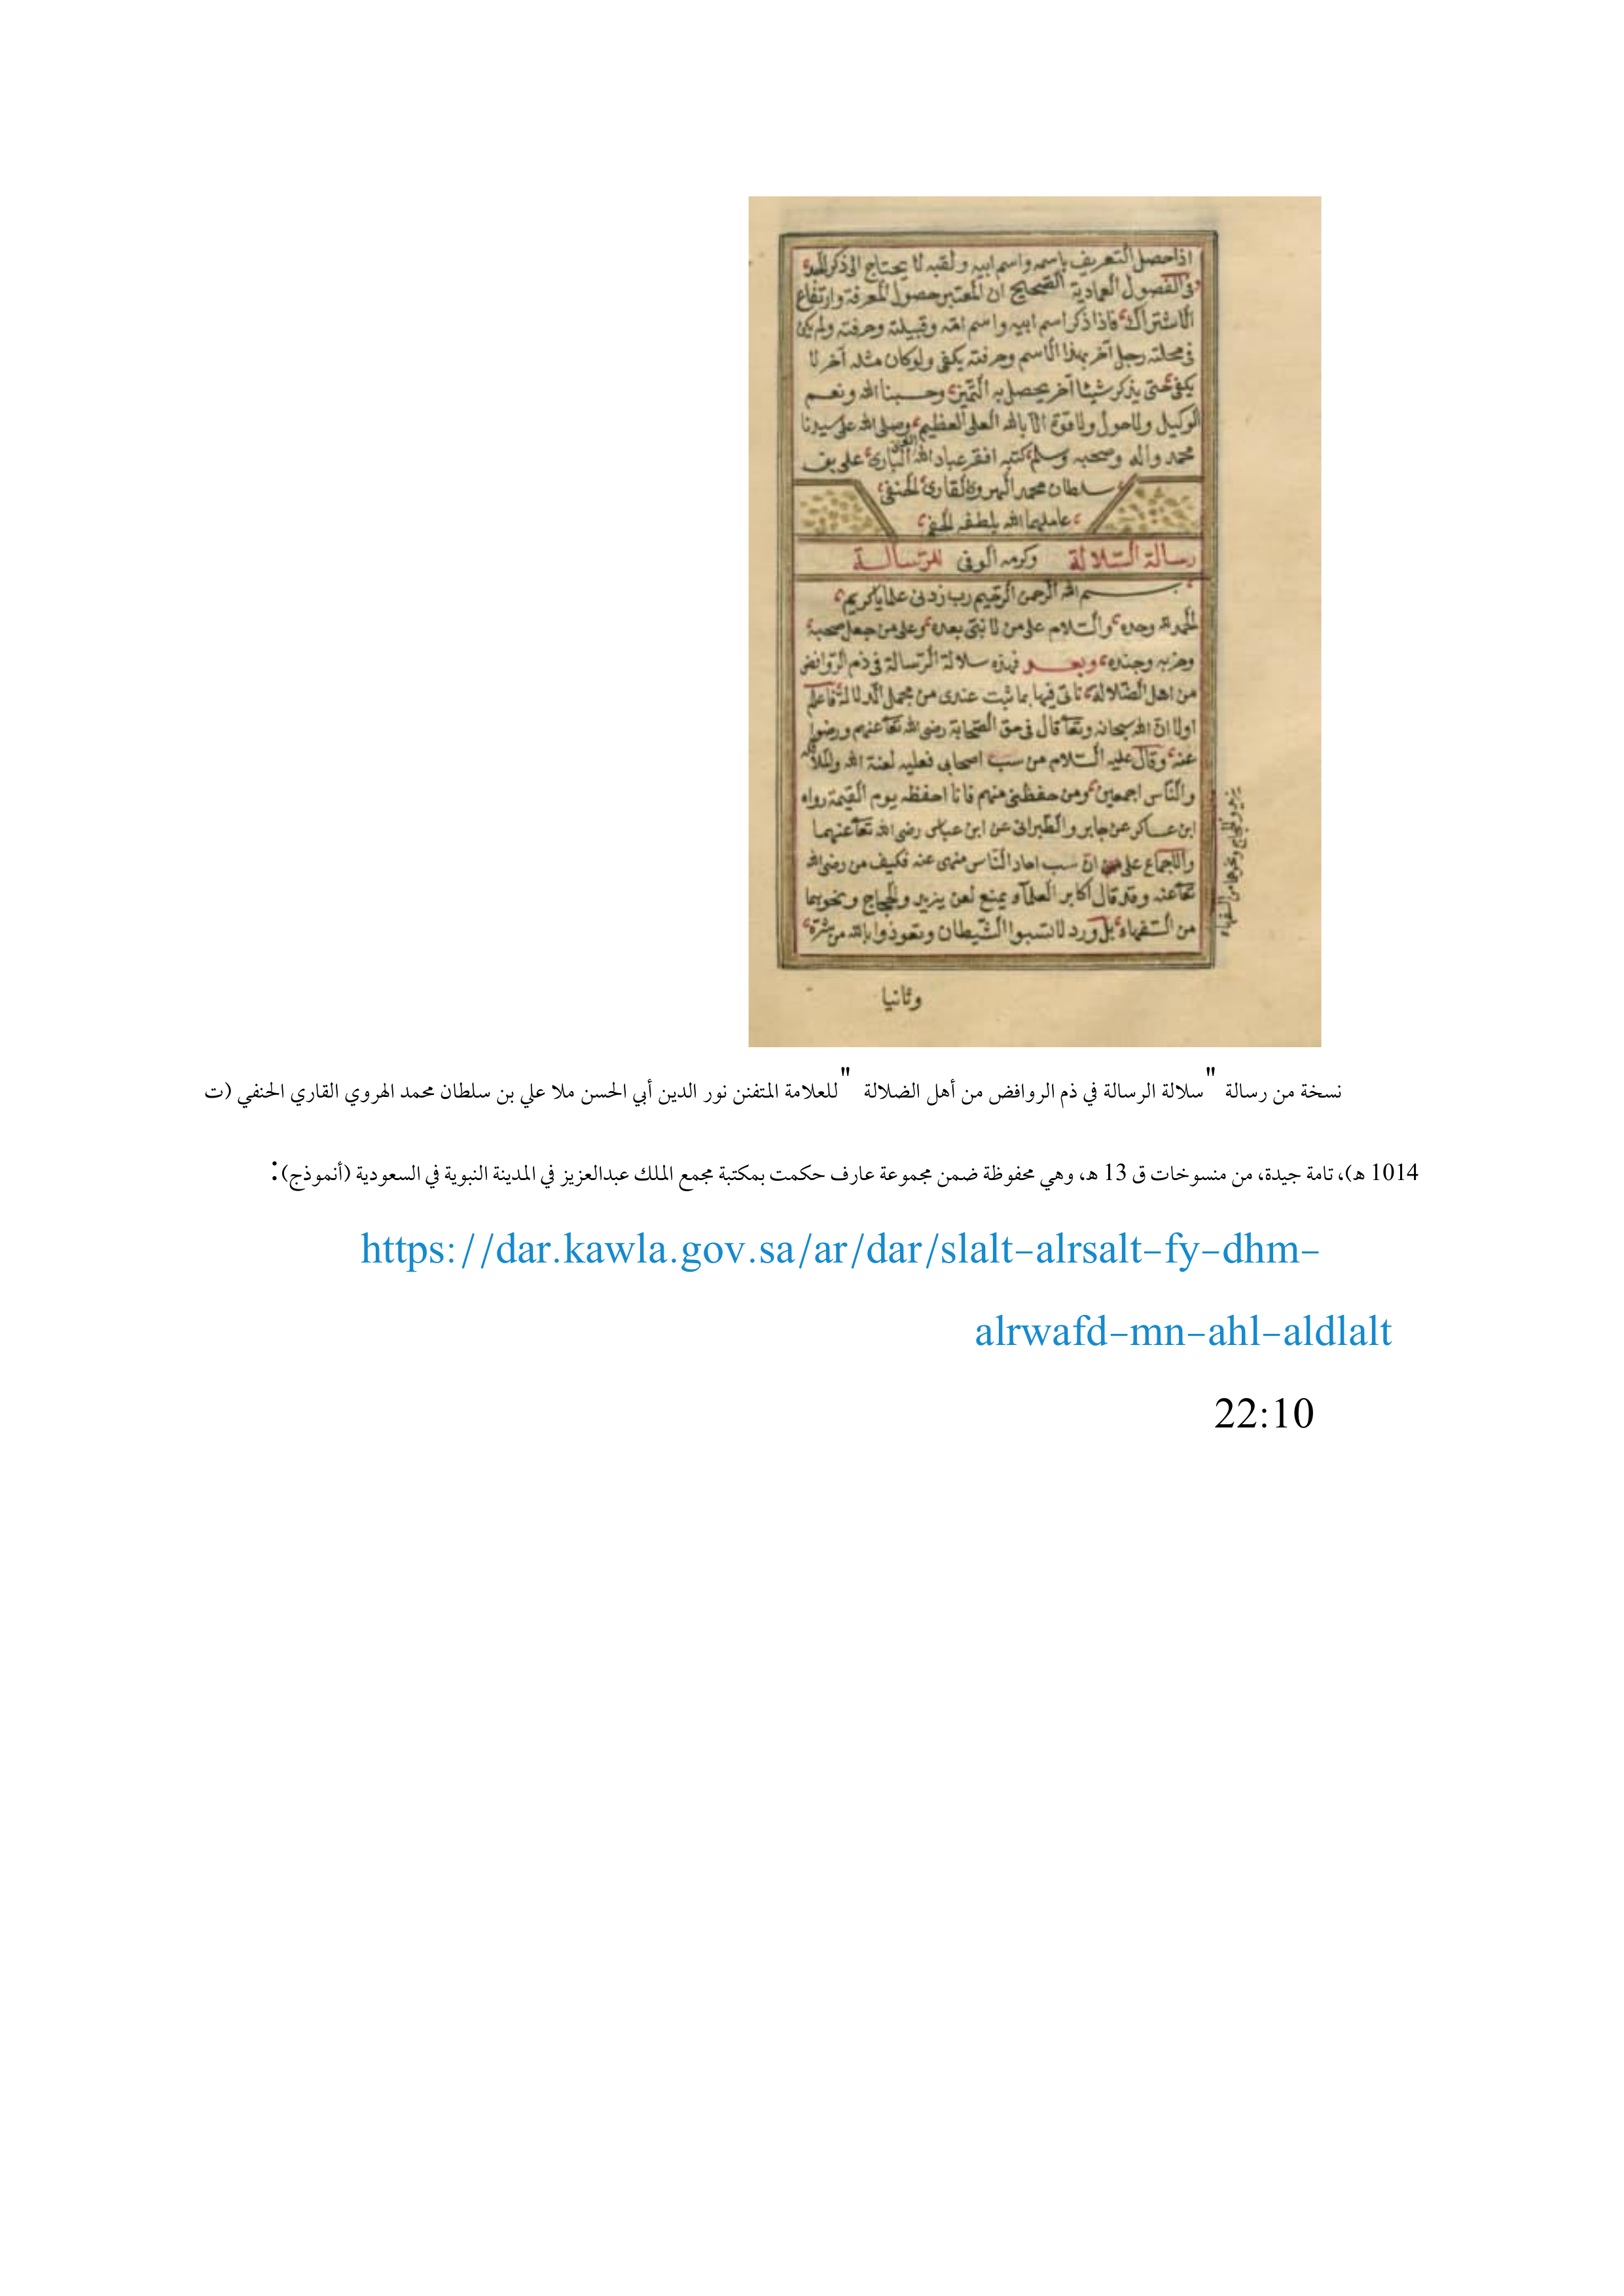 اذا حصل التعريف باسمه واسم ابيه ولقبه لا يحتاج الى ذكر الجد
وفى الفصول العمادية الصحيح ان المعتبر حصول المعرفة وارتفاع
الاشتراك فاذا ذكر اسم ابيه واسم امه وقبيلته وحرفته ولم يكن
فى محلته رجل آخر بهذا الاسم وحرفته يكفى ولو كان مثله آخر لا
يكفى حتى يذكر شيئا آخر يحصل به التميز وحسبنا الله ونعم
الوكيل ولا حول ولا قوة الا بالله العلى العظيم وصلى الله على سيدنا
محمد واله وصحبه وسلم كتبه افقر عباد الله البارى على بن
سلطان محمد الهروى القارئ الحنفى
عاملهما الله بلطفه الخفى
رسالة السلالة وكرمه الوفى للرسالة
بسم الله الرحمن الرحيم رب زدنى علما يا كريم
الحمد لله وحده والسلام على من لا نبى بعده وعلى من جعل صحبه
وحزبه وجنده وبعد فهذه سلالة الرسالة فى ذم الروافض
من اهل الضلالة ناتى فيها بما ثبت عندى من مجمل الدلالة فاعلم
اولا ان الله سبحانه وتعا قال فى حق الصحابة رضى الله تعا عنهم ورضوا
عنه وقال عليه السلام من سب اصحابى فعليه لعنة الله والملائكه
والناس اجمعين ومن حفظنى منهم فانا احفظه يوم القيمة رواه
ابن عساكر عن جابر والطبرانى عن ابن عباس رضى الله تعا عنهما
والاجماع على ان سب احاد الناس منهى عنه فكيف من رضى الله
تعا عنه وقد قال اكابر العلماء يمنع لعن يزيد والحجاج ونحوهما
من السفهاء بل ورد لا تسبوا الشيطان وتعوذوا بالله من شره
وثانيا
نسخة من رسالة "سلالة الرسالة في ذم الروافض من أهل الضلالة "للعلامة المتفنن نور الدين أبي الحسن ملا علي بن سلطان محمد الهروي القاري الحنفي (ت
1014 هـ)، تامة جيدة، من منسوخات ق 13 هـ، وهي محفوظة ضمن مجموعة عارف حكمت بمكتبة مجمع الملك عبدالعزيز في المدينة النبوية في السعودية (أنموذج):
https://dar.kawla.gov.sa/ar/dar/slalt-alrsalt-fy-dhm-
alrwafd-mn-ahl-aldlalt
22:10